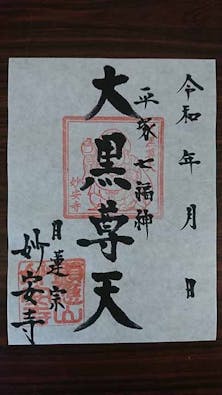 令和 年 月 日
平塚七福神
大黒尊天
日蓮宗
妙安寺
妙安寺